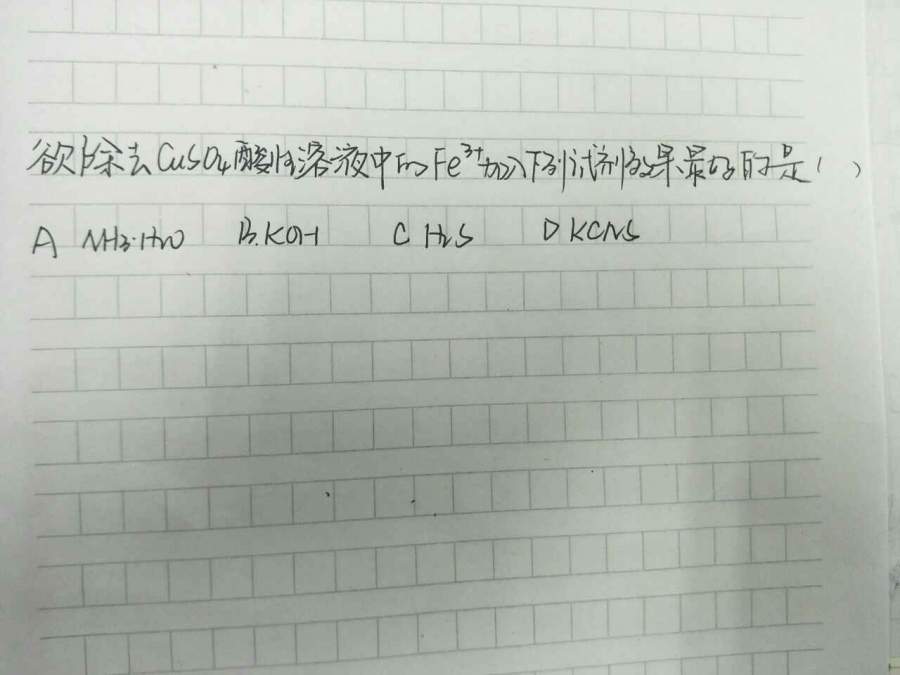 欲除去CuSO4酸性溶液中的Fe³⁺加入下列试剂效果最好的是( )
A NH3·H2O B.KOH C H2S D KCNS